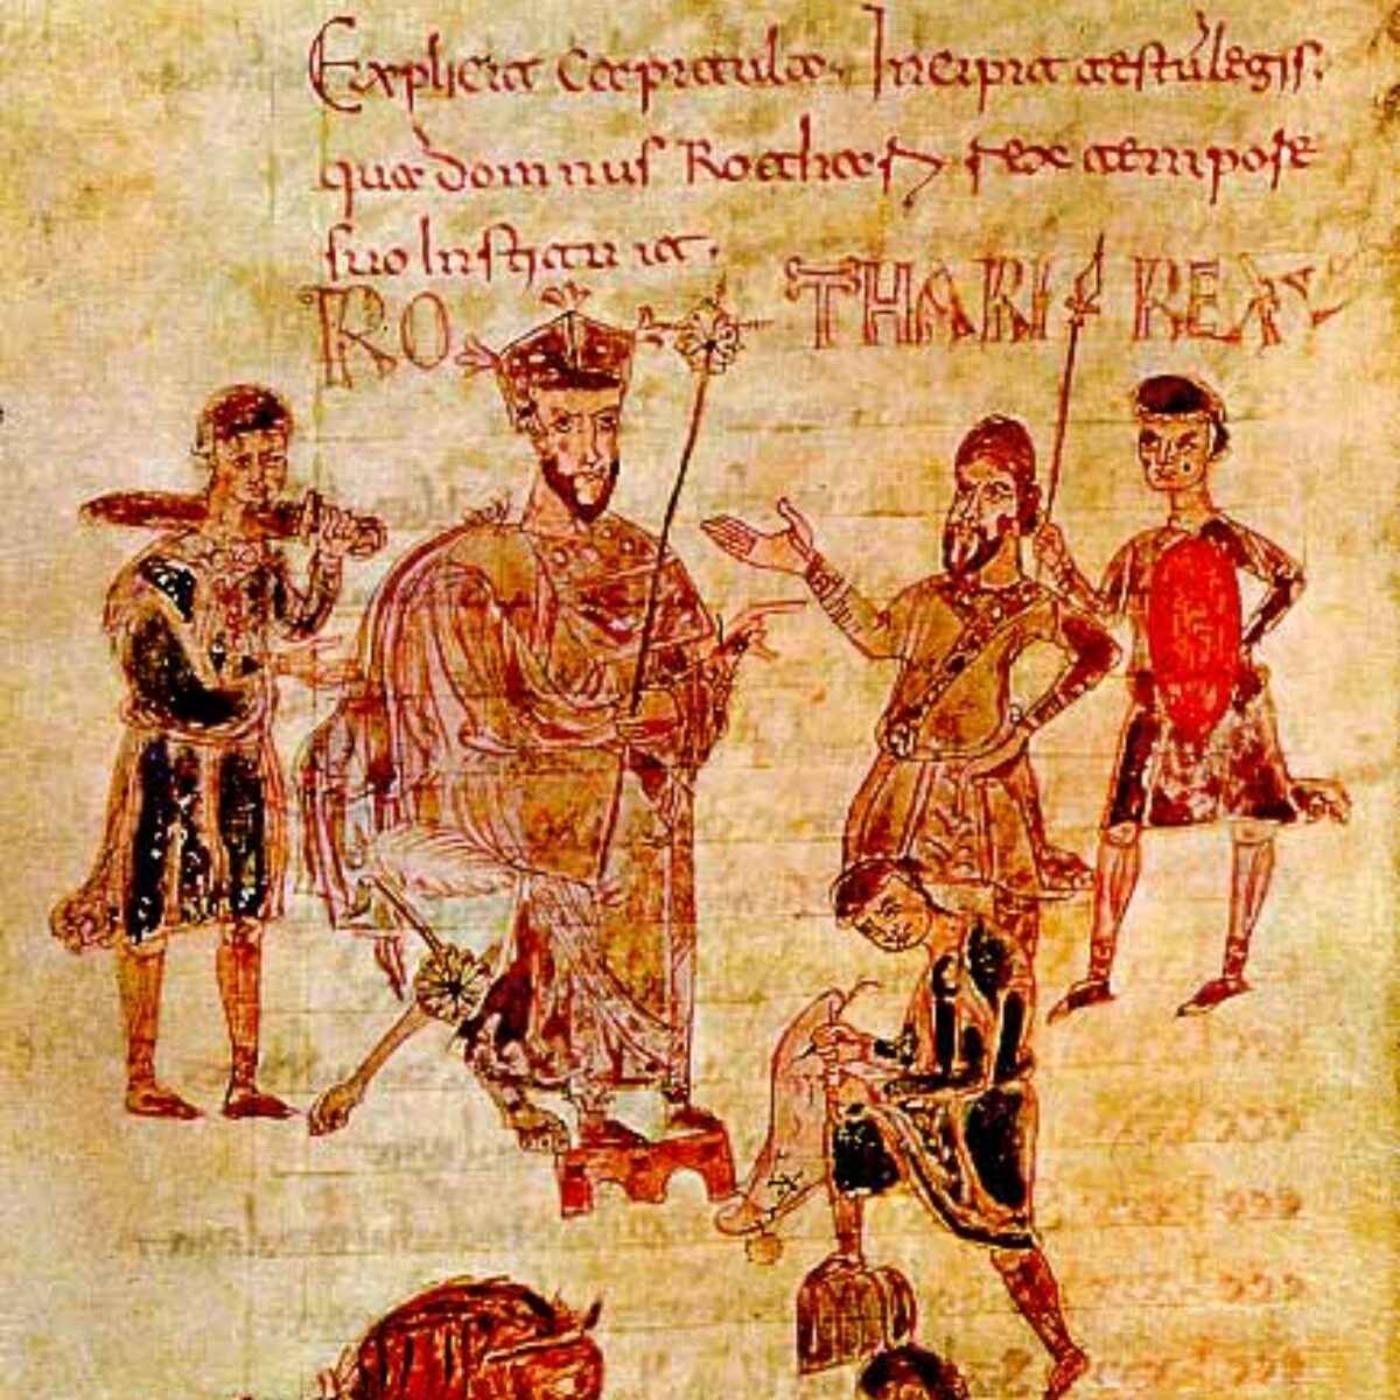 Explicia capitula. Incipit aestulegis.
quae domnus Roathari rex tempore
suo Instaruia.
RO THARI REX